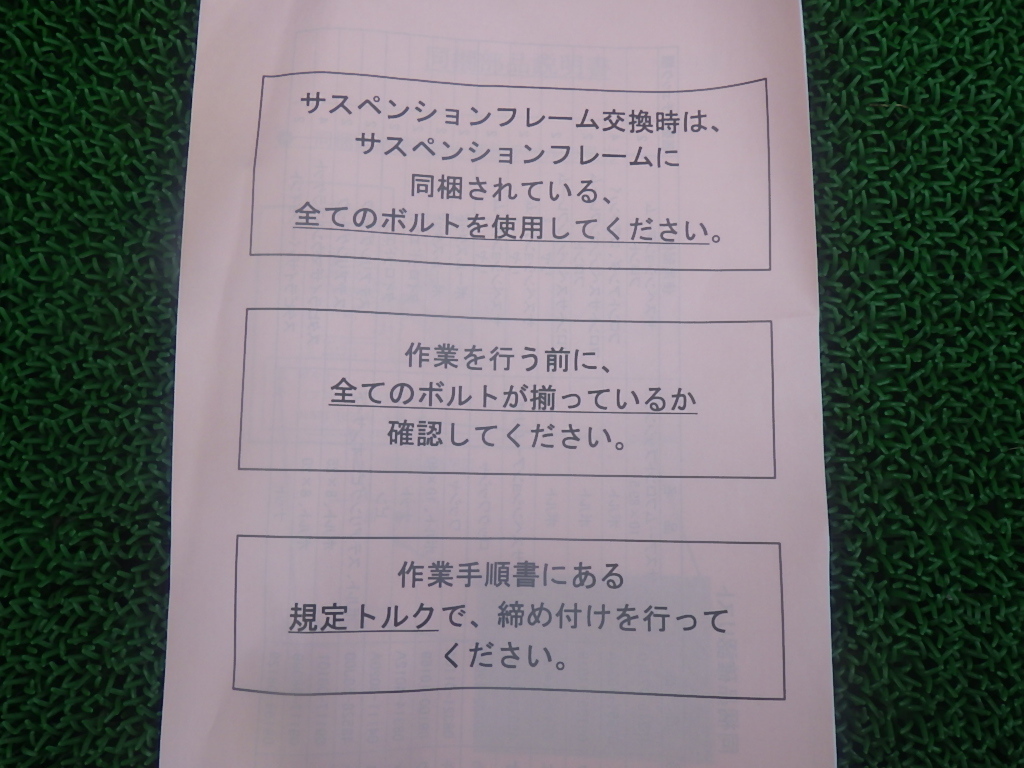 サスペンションフレーム交換時は、
サスペンションフレームに
同梱されている、
全てのボルトを使用してください。
作業を行う前に、
全てのボルトが揃っているか
確認してください。
作業手順書にある
規定トルクで、締め付けを行って
ください。